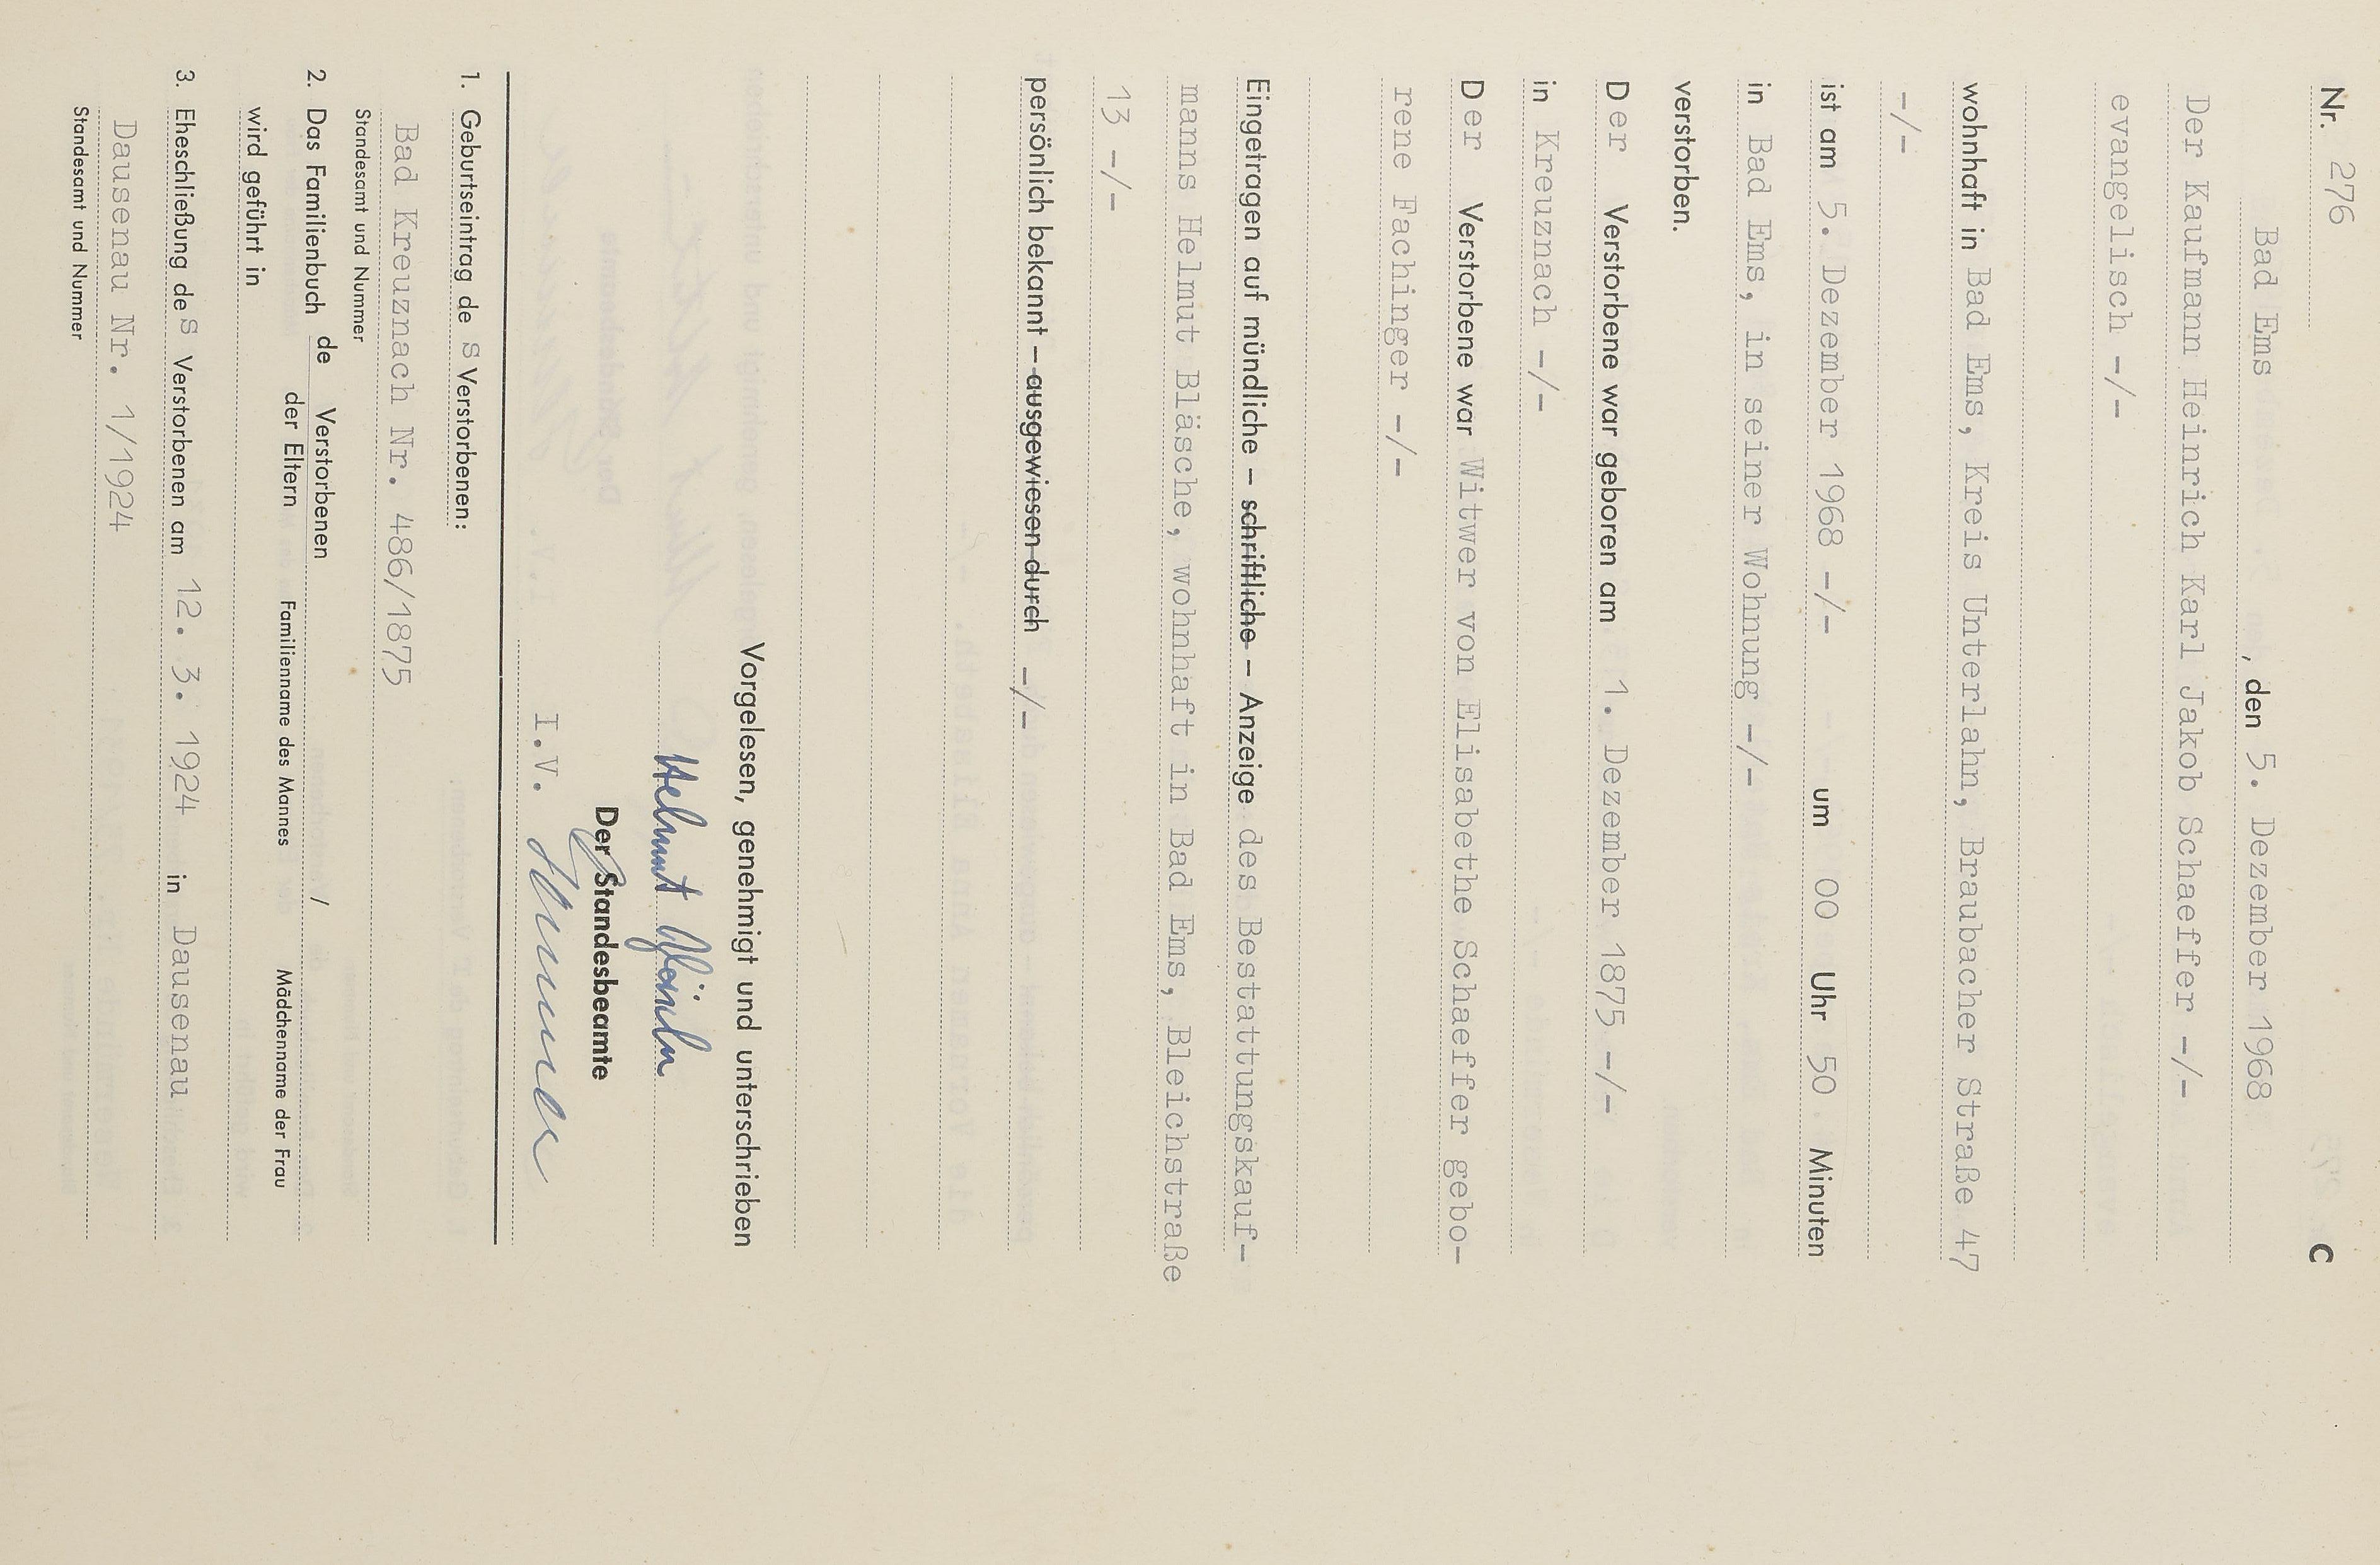 Nr. 276 C
Bad Ems, den 5. Dezember 1968
Der Kaufmann Heinrich Karl Jakob Schaeffer -/-
evangelisch -/-
wohnhaft in Bad Ems, Kreis Unterlahn, Braubacher Straße 47
-/-
ist am 5. Dezember 1968 -/- um 00 Uhr 50 Minuten
in Bad Ems, in seiner Wohnung -/-
verstorben.
Der Verstorbene war geboren am 1. Dezember 1875 -/-
in Kreuznach -/-
Der Verstorbene war Witwer von Elisabethe Schaeffer gebo-
rene Fachinger -/-
Eingetragen auf mündliche – schriftliche – Anzeige des Bestattungskauf-
manns Helmut Bläsche, wohnhaft in Bad Ems, Bleichstraße
13 -/-
persönlich bekannt – ausgewiesen durch -/-
Vorgelesen, genehmigt und unterschrieben
Helmut Bläsche
Der Standesbeamte
I.V.
1. Geburtseintrag des Verstorbenen:
Bad Kreuznach Nr. 486/1875
Standesamt und Nummer
2. Das Familienbuch de Verstorbenen /
der Eltern Familienname des Mannes Mädchenname der Frau
wird geführt in
3. Eheschließung des Verstorbenen am 12. 3. 1924 in Dausenau
Dausenau Nr. 1/1924
Standesamt und Nummer